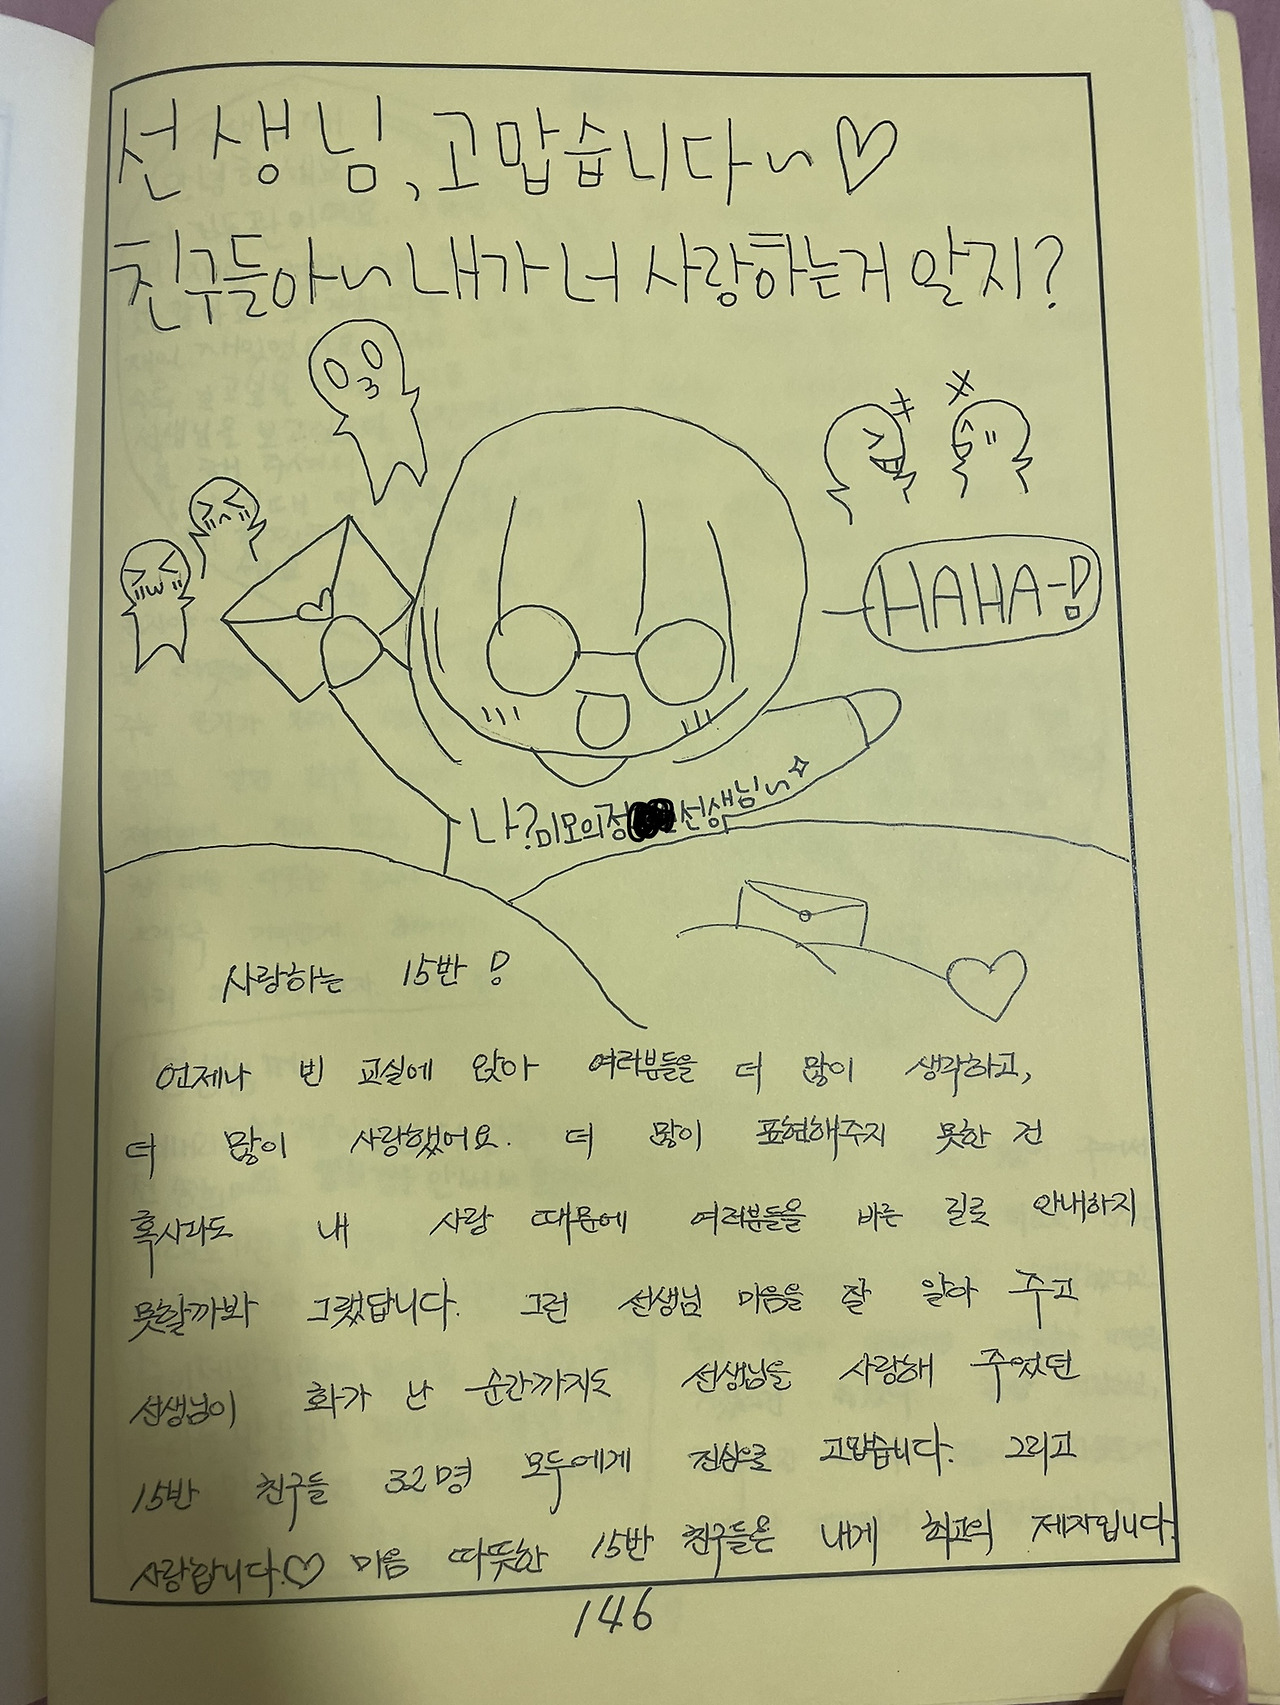 선생님, 고맙습니다~♡
친구들아~ 내가 너 사랑하는거 알지?
HAHA-!
나? 미모의 정 선생님~
사랑하는 15반!
언제나 빈 교실에 앉아 여러분들을 더 많이 생각하고,
더 많이 사랑했어요. 더 많이 표현해주지 못한 건
혹시라도 내 사랑 때문에 여러분들을 바른 길로 안내하지
못할까봐 그랬답니다. 그런 선생님 마음을 잘 알아 주고
선생님이 화가 난 순간까지도 선생님을 사랑해 주었던
15반 친구들 32명 모두에게 진심으로 고맙습니다. 그리고
사랑합니다.♡ 마음 따뜻한 15반 친구들은 내게 최고의 제자입니다.
146